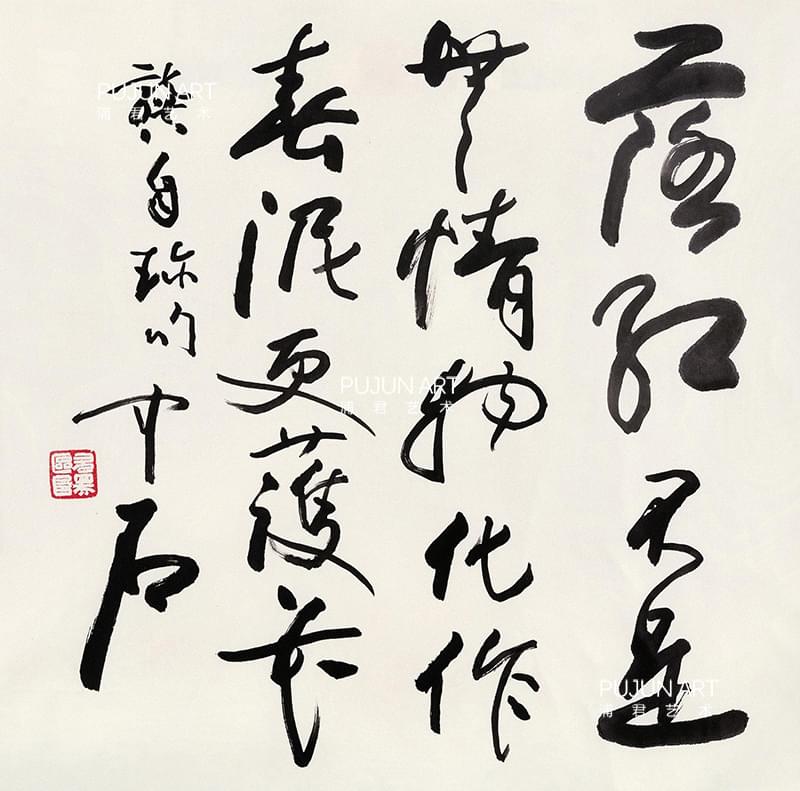 落紅不是
無情物化作
春泥更護花
龔自珍吟
中石
PUJUN ART
浦君艺术
PUJUN ART
浦君艺术
PUJUN ART
浦君艺术